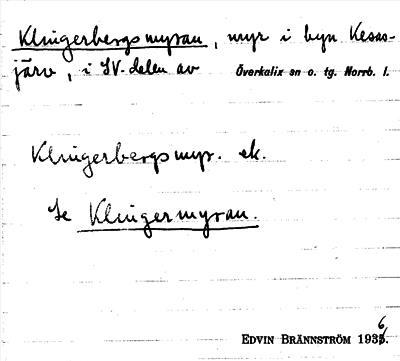 Klingerbergsmyran, myr i byn Kesas-
järv, i SV-delen av Överkalix sn o. tg. Norrb. l.
Klingerbergsmyr. ek.
Se Klingermyran.
EDVIN BRÄNNSTRÖM 1936.